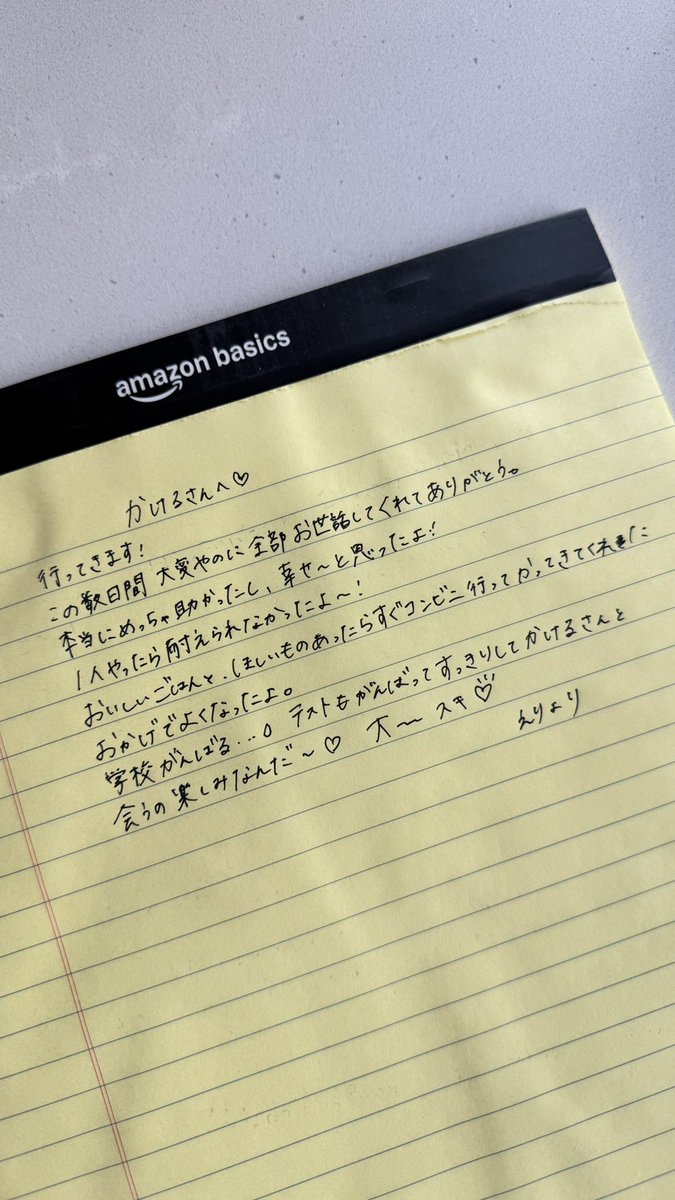 amazon basics
かけるさんへ♡
行ってきます!
この数日間 大変やのに 全部 お世話してくれてありがとう。
本当にめっちゃ助かったし、幸せ〜と思ったよ!!
1人やったら耐えられなかったよ〜!
おいしいごはんと、ほしいものあったらすぐコンビニ行って かってきてくれた
おかげでよくなったよ。
学校がんばる...。 テストもがんばってすっきりしてかけるさんと
会うの楽しみなんだ〜♡ 大〜スキ♡
えりより